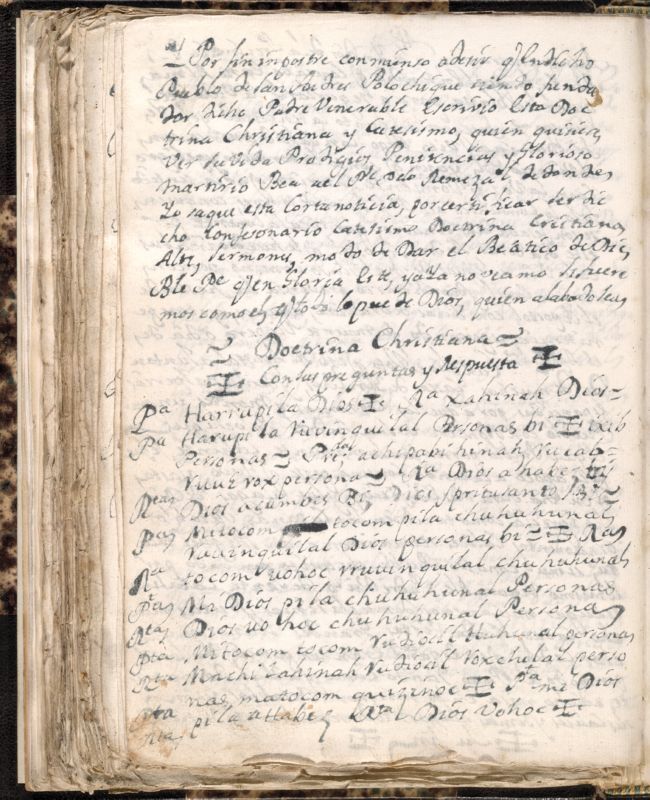 Por fin i npostre conmienso a desir q̃ en dicho
Pueblo de San Andres Polochique siendo funda
dor dicho Padre Venerable Escrivio Esta Doc
trina Christiana y Catesismo, quien quisiera,
Ver su Vida Prodigios Penitencias y glorioso
martirio Bea del Pe Remeza de donde,
Yo saque esta Corta noticia, por certificar ser di
cho Confesonario Catesismo Doctrina Cristiana,
Sermones, modo de Dar el Beatico de
Ble Pe q̃ en Gloria Este, ya Ya no veamo
mos como el, q̃ todo lo pue de Dios, quien alabado sea,
Doctrina Christiana
Con las preguntas y Respuesta
Pa Harrupila Dios Ra xahinah Dios
Pa Harupila ruvinquilal Personas bi ixib
Personas achipabihinah rucab
ruux rox persona Ra Dios ahabe
Rtas Dios acumbes Bi, Dios Spritusanto, Bi
Pas Mitocom tocom pila chuhuhunal,
ruvinquilal Dios personas bi Ras
Ra tocom vohoc vruvinquilal chuhuhunal,
Ptas Mi Dios pila chuhuhunal Personas
Rtas Dios vohoc chuhuhunal Personas
Pta Mitocom tocom rudioal huhunal personas
Rta Machi xahinah rudioal voxchulal perso
nas matocom quizinoc Pta mi Dios
Rta pila attabe Rtal Dios Vohoc